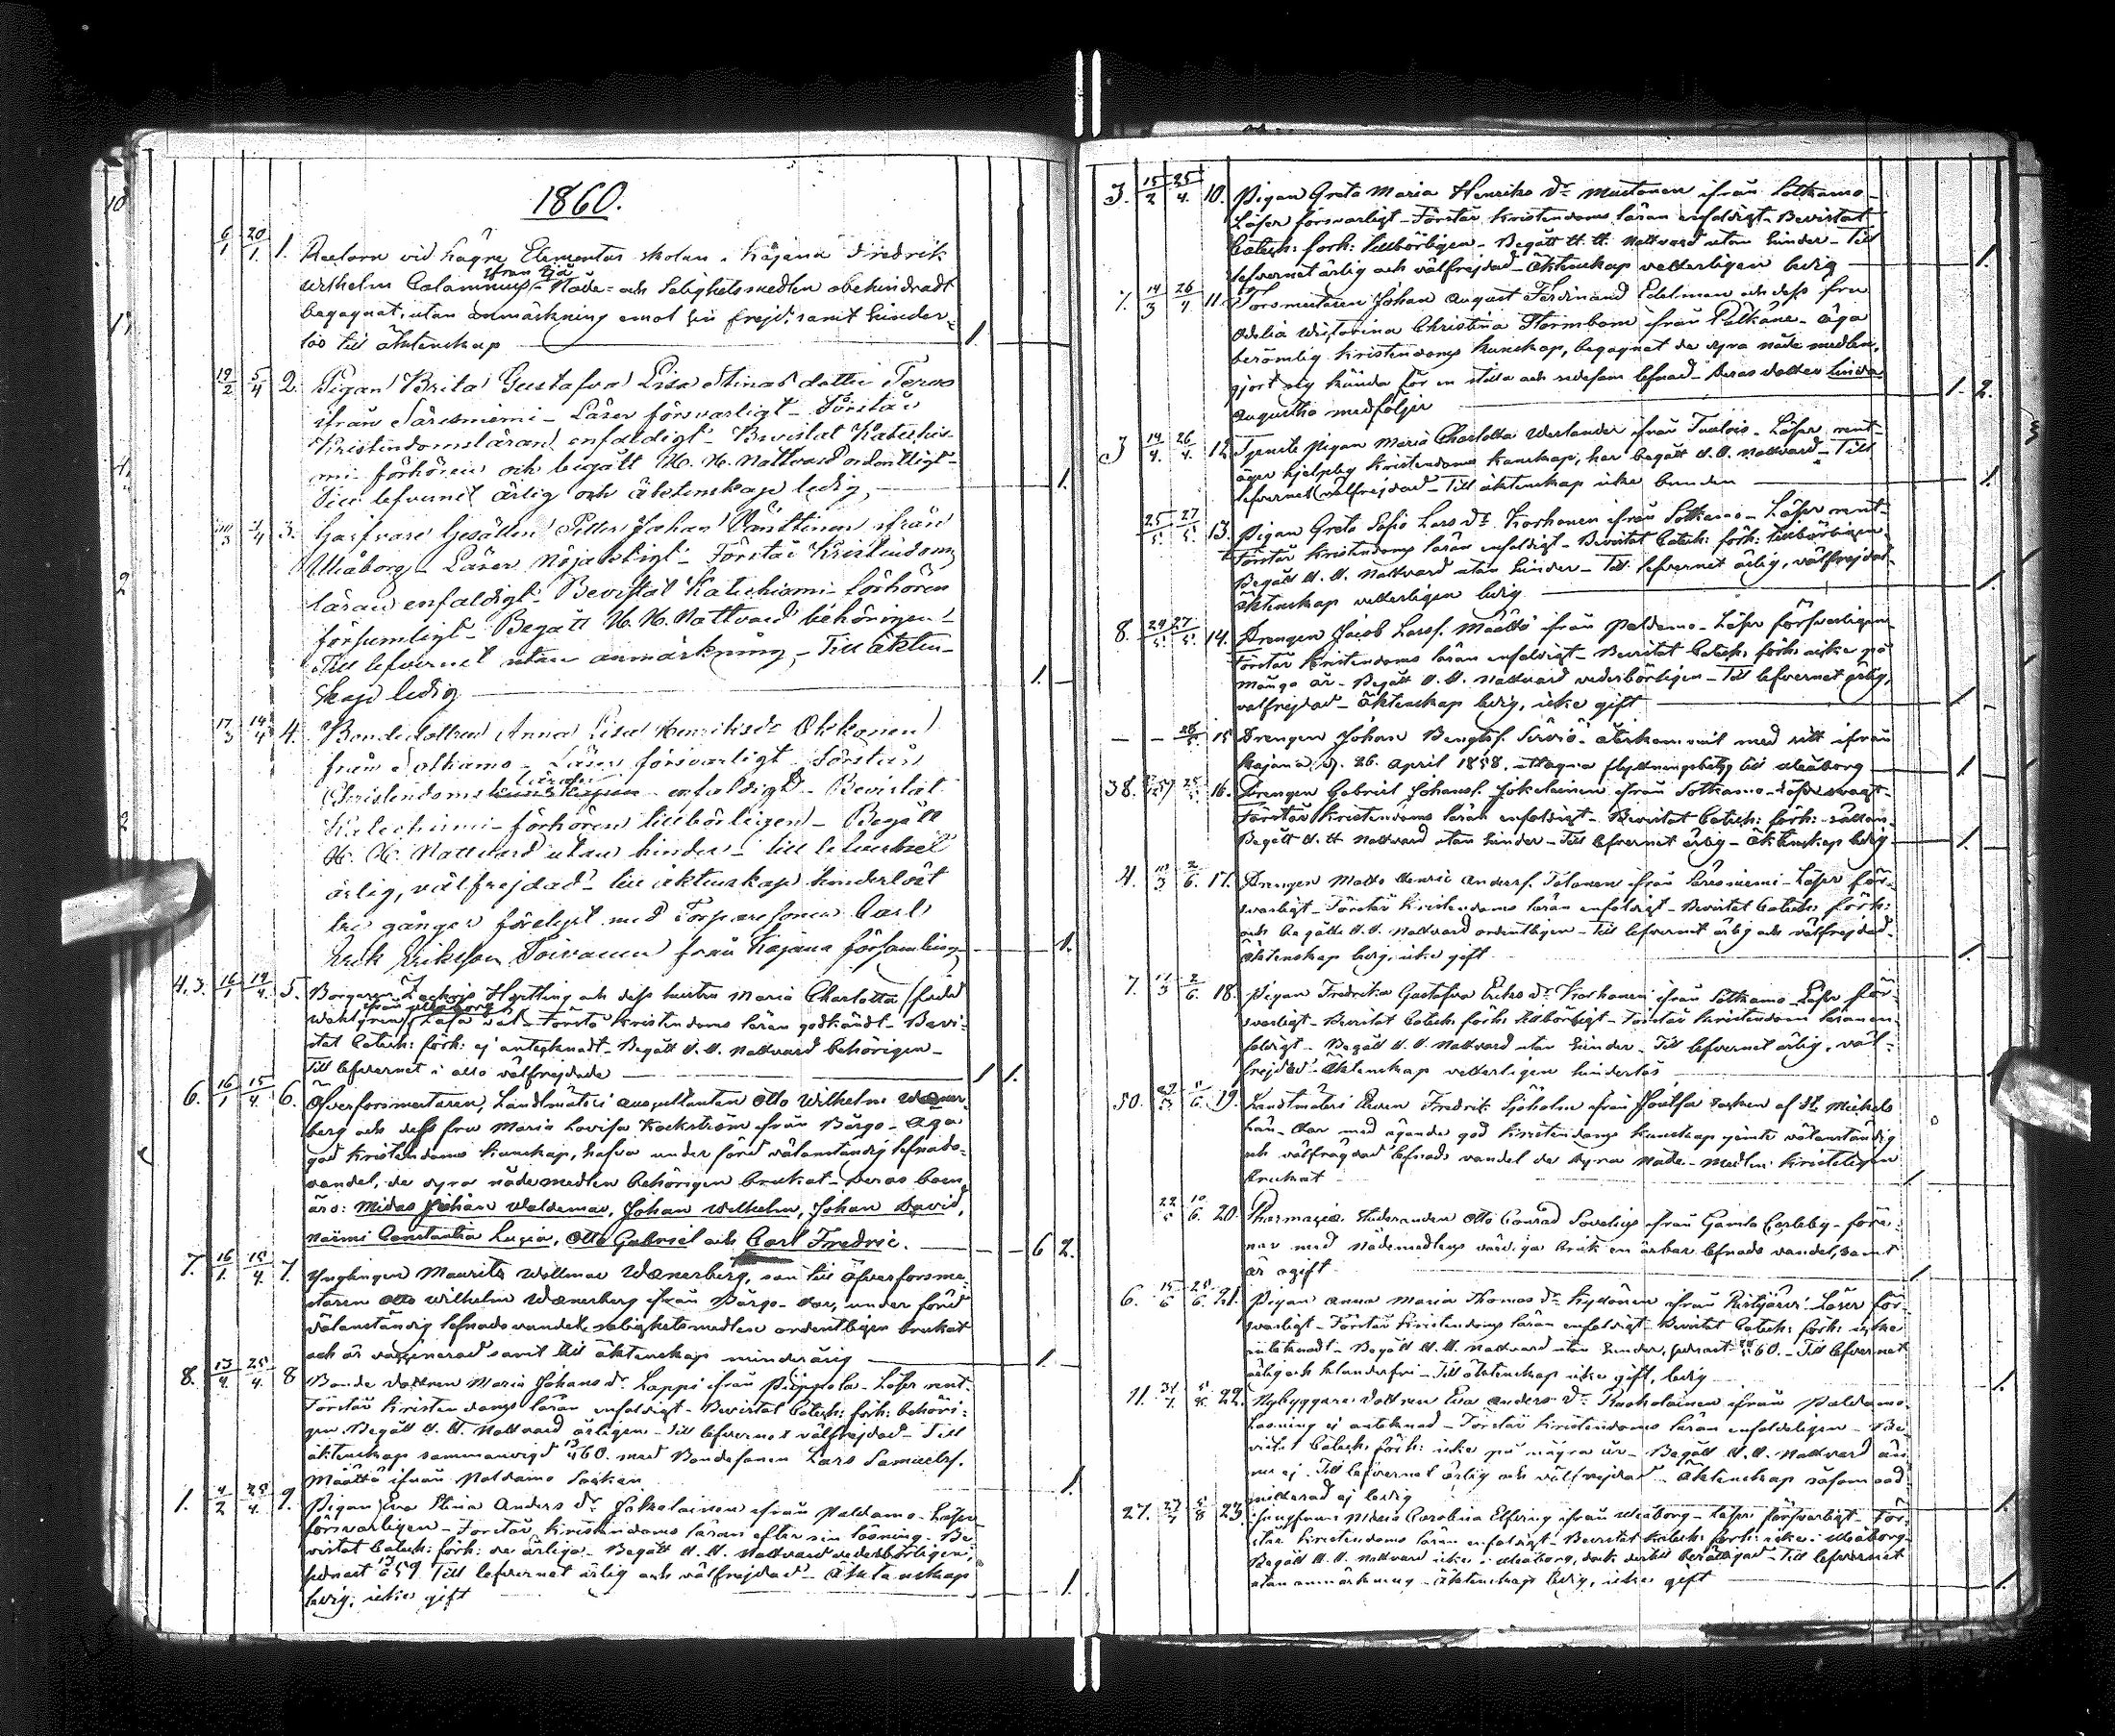 1860.
6/1 20/1 1. Rectorn vid lägre Elementar skolan i Kajana Fredrik
Wilhelm Calamnius ifrån Ijå - Nåde- och Salighetsmedlen obehindradt
begagnat, utan anmärkning emot sin frejd, samt hinder-
lös till äktenskap 1
19/2 5/4 2. Pigan Brita Gustafva Lisa Stinas dotter Tervo
ifrån Säresniemi - Läser försvarligt - Förstår
Kristendomsläran enfaldigt - Bevistat Kateches-
mi förhören och begått H. H. Nattvard ordentligt -
Till lefvernet ärlig och äktenskap ledig, 1.
3. Garfvare Gesällen Petter Johan ifrån
Uleåborg - Läser Nöjaktligt - Förstår Kristendoms
läran enfaldigt - Bevistat Katechismi förhören
försumligt - Begått H. H. Nattvard behörigen -
Till lefvernet utan anmärkning, - Till äkten-
skap ledig 1.
17/3 14/4 4. Bondedottren Anna Lisa Henriksdr Okkonen
från Sotkamo - Läser försvarligt - Förstår
Christendoms läran enfaldigt - Bevistat
Katechismi - förhören tillbörligen - Begått
H. H. Nattvard utan hinder - till lefvernet
ärlig, välfrejdad - till äktenskap hinderlöst
tre gånger förelyst med Torparesonen Carl
Erik Eriksson Toivanen från Kajana församling 1.
4.3. 16/1 14/4. 5. Borgaren Zachris Hartling och dess hustru Maria Charlotta (född
Wahlgren) från Uleåborg Läsa väl - Förstå Kristendoms läran godkändt - Bevi-
stat Catech: förh: ej antecknadt - Begått H. H. Nattvard behörigen -
Till lefvernet i allo välfrejdade 1 1.
6. 16/1 15/4. 6. Öfverforstmästaren, Landtmäteri auscultanten Otto Wilhelm Wæner-
berg och dess fru Maria Lovisa Kockström ifrån Bårgo - Äga
god Kristendoms kunskap, hafva under förd välanständig lefnads-
vandel, de dyra nådemedlen behörigen brukat - Deras barn
äro: Midas Johan Waldemar, Johan Wilhelm, Johan David,
Naëmi Constantia Lucia, Otto Gabriel och Carl Fredric. 6 2.
7. 16/1. 4. 7. Ynglingen Maurits Wollmar Wænerberg, son till öfverforstme-
staren Otto Wilhelm Wænerberg ifrån Bårgo - har, under förd
välanständig lefnadsvandel, salighetsmedlen ordentligen brukat
och är vaccinerad samt till äktenskap minderårig 1.
8. 13/4. 25/4. 8 Bonde dottren Maria Johans dr Lappi ifrån Piippola - Läser rent.
Förstår Kristendoms läran enfaldigt - Bevistat Catech: förh: behöri-
gen. Begått H. H. Nattvard ärligen - Till lefvernet välfrejdad - Till
äktenskap sammanvigd 60. med Bondesonen Lars Samuelss.
Määttä ifrån Paldamo Socken 1.
1. 4/2 25/4. 9. Pigan Eva Stina Anders dr Jokelainen ifrån Paldamo - Läser
försvarligen - Förstår Kristendoms läran efter sin läsning - Be-
vistat Catech: förh: de årliga - Begått H. H. Nattvard vederbörligen;
senast 59 Till lefvernet ärlig och välfrejdad - Äktenskap
ledig, icke gift 1.
3. 15/2 25/4. 10. Pigan Greta Maria Henriks dr Mustonen ifrån Sotkamo -
Läser försvarligt - Förstår Kristendoms läran enfaldigt - Bevistat
Catech: förh: tillbörligen - Begått H. H. Nattvard utan hinder - Till
lefvernet ärlig och välfrejdad - Äktenskap vetterligen ledig 1.
7. 14/3 26/4 11. Forstmästaren Johan August Ferdinand Edelman och dess fru
Adelia Wictorina Christina Stormbom ifrån Pälkäne - äga
berömlig Kristendoms kunskap, begagnat de dyra nåde medlen,
gjort sig kända för en stilla och redesam lefnad - Deras dotter Linda
Augusta medföljer 1. 2.
3 14/4. 26/4. 12 Tjenste pigan Maria Charlotta Werlander ifrån Tuulois - Läser rent -
äger hjelplig Kristendoms kunskap, har begått H. H. Nattvard - Till
lefvernet välfrejdad - Till äktenskap icke bunden 1.
25/5. 27/5. 13. Pigan Greta Sofia Lars dr Korhonen ifrån Sotkamo - Läser rent -
Förstår Kristendoms läran enfaldigt - Bevistat Catech: förh: tillbörligen -
Begått H. H. Nattvard utan hinder - Till lefvernet ärlig, välfrejdad -
Äktenskap vetterligen ledig 1.
8. 24/5. 27/5. 14. Drengen Jacob Larss. Määttä ifrån Paldamo - Läser försvarligen
Förstår Kristendoms läran enfaldigt - Bevistat Catech. förh. icke på
många år - Begått H. H. Nattvard vederbörligen - Till lefvernet ärlig,
välfrejdad - Äktenskap ledig, icke gift 1.
— — 28/5. 15 Drengen Johan Bengts. Serviö - återkommit med sitt ifrån
Kajana d. 26. April 1858. uttagna flyttningsbetyg till Uleåborg 1.
38. 16. Drengen Gabriel Johanss. Jokelainen ifrån Sotkamo - Läser svagt -
Förstår Kristendoms läran enfaldigt - Bevistat Catech: förh: sällan -
Begått H. H. Nattvard utan hinder - Till lefvernet ärlig - Äktenskap ledig 1.
4. 2/6. 17. Drengen Matts Henric Anderss. Tolonen ifrån Säresniemi - Läser för-
svarligt - Förstår Kristendoms läran enfaldigt - Bevistat Catech: förh:
och begått H. H. Nattvard ordentligen - Till lefvernet ärlig och välfrejdad -
Äktenskap ledig, icke gift 1.
7. 2/6. 18. Pigan Fredrika Gustafva Eriks dr Korhonen ifrån Sotkamo - Läser för-
svarligt - Bevistat Catech: förh: tillbörligt - Förstår Kristendoms läran en-
faldigt - Begått H. H. Nattvard utan hinder - Till lefvernet ärlig, väl-
frejdad - Äktenskap vetterligen hinderlös
50. 19. Landtmäteri Eleven Fredrik Sjöholm ifrån Joutsa socken af St. Michels
Län - Har med ägande god Kristendoms kunskap jämte välanständig
och välfrägdad lefnads vandel de dyra Nåde-medlen kristeligen
brukat 1
22/5 10/6. 20. Pharmacie Studeranden Otto Conrad Sovelius ifrån Gamla Carleby - före-
nar med Nådemedlens värdiga bruk en ärbar lefnads vandel, samt
är ogift 1
6. 15/6 25/6. 21. Pigan Anna Maria Thomas dr Kyllönen ifrån Ristijärvi - Läser för-
svarligt - Förstår Kristendoms läran enfaldigt - Bevistat Catech: förh: icke
anteknadt - Begått H. H. Nattvard utan hinder, senast 60. - Till lefvernet
ärlig och klanderfri - Till äktenskap icke gift, ledig 1.
11. 22. Nybyggare dottren Eva Anders dr Ruokolainen ifrån Paldamo.
Läsning ej anteknad - Förstår Kristendoms läran enfaldeligen - Be-
vistat Catech: förh: icke på några år - Begått H. H. Nattvard än-
nu ej. Till lefvernet ärlig och välfrejdad - Äktenskap såsom oad-
mitterad ej ledig 1.
27. 8 23. Jungfrun Maria Carolina Elfving ifrån Uleåborg - Läser försvarligt - För-
står Kristendoms läran enfaldigt - Bevistat Katech: förh: icke i Uleåborg -
Begått H. H. Nattvard icke i Uleåborg, dock dertill berättigad - Till lefvernet
utan anmärkning - Äktenskap ledig, icke gift 1.